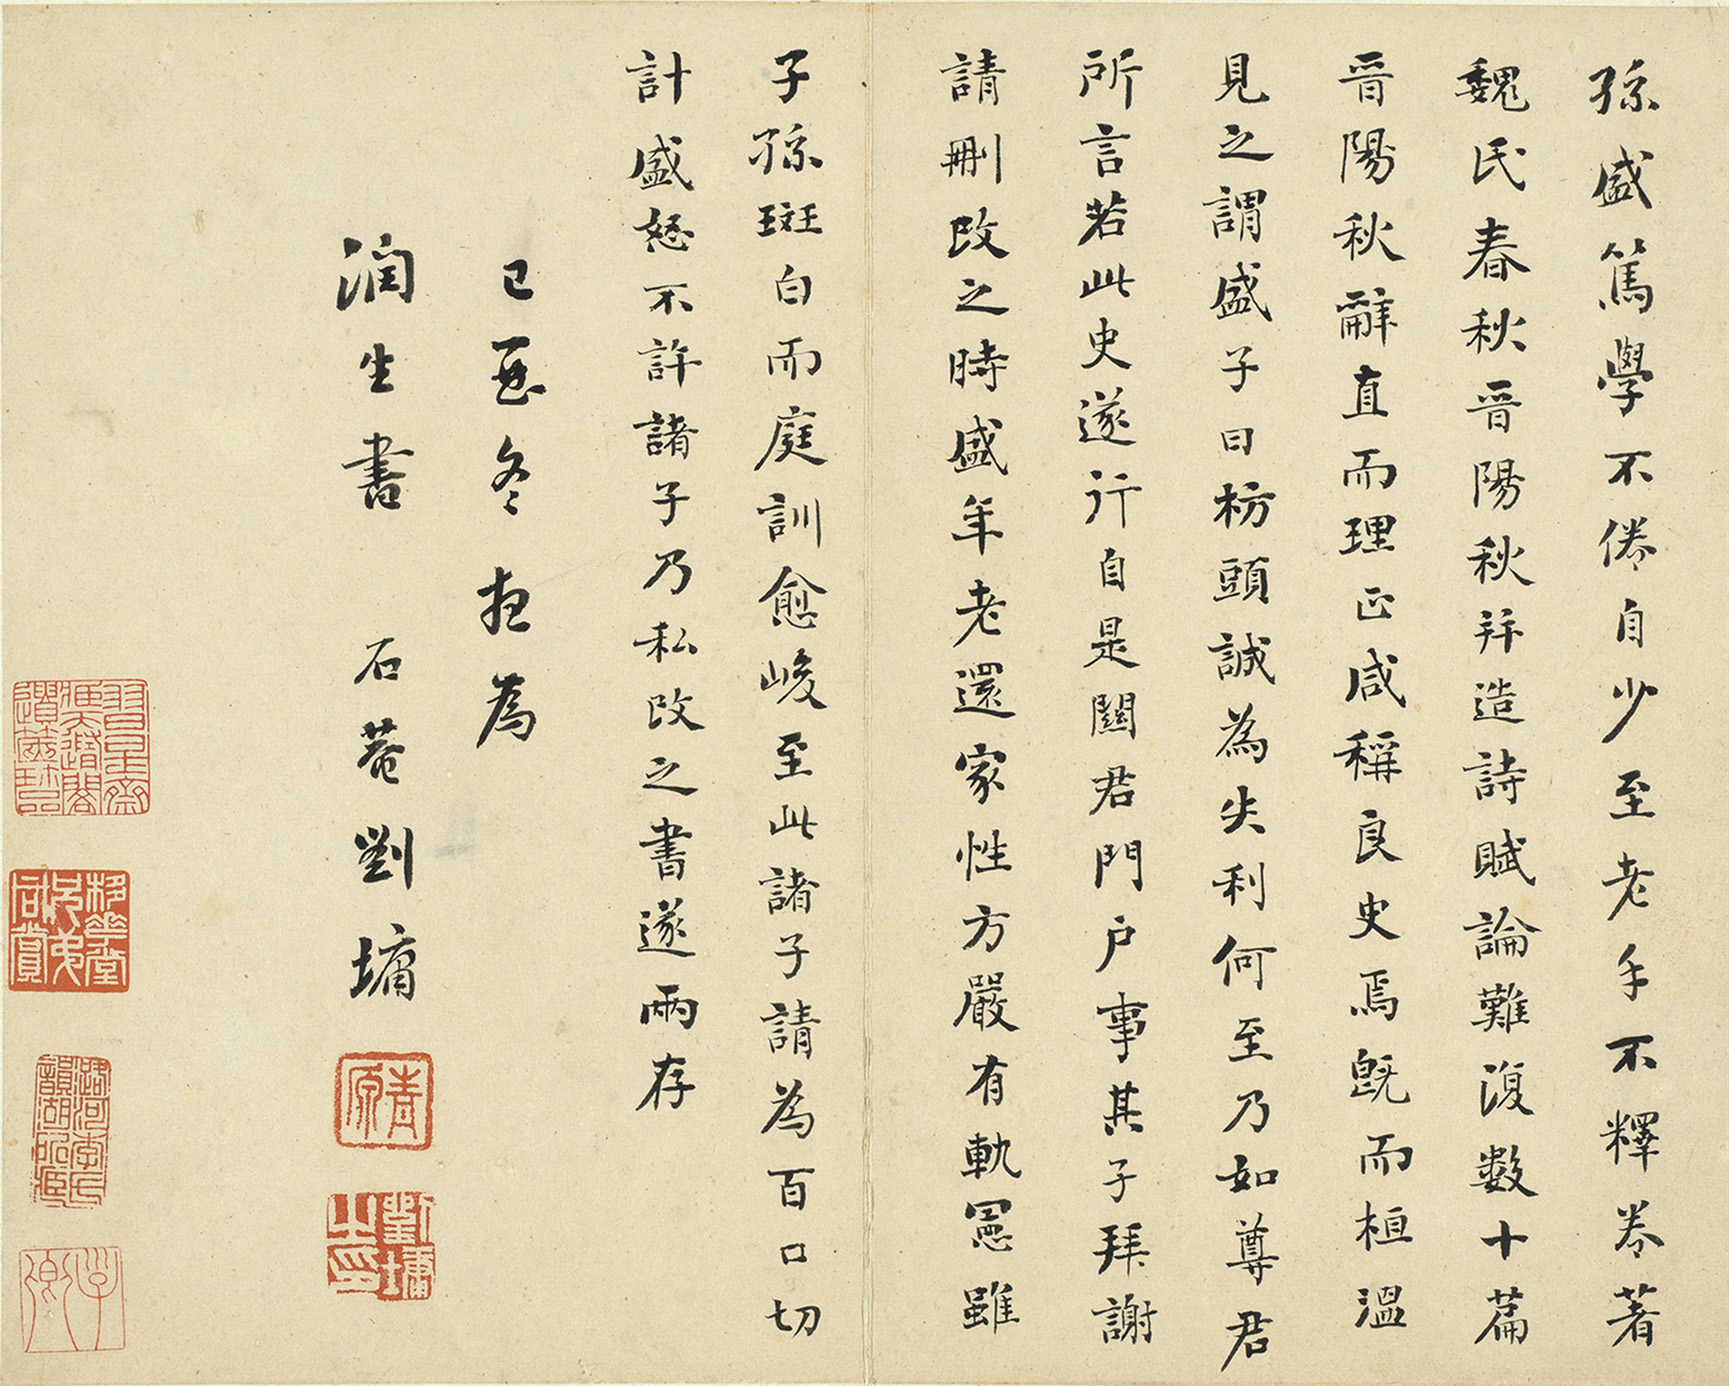 孫盛篤學不倦自少至老手不釋卷著
魏氏春秋晉陽秋并造詩賦論難復數十篇
晉陽秋辭直而理正咸稱良史焉既而桓溫
見之謂盛子曰枋頭誠為失利何至乃如尊君
所言若此史遂行自是關君門戶事其子拜謝
請刪改之時盛年老還家性方嚴有軌憲雖
子孫斑白而庭訓愈峻至此諸子請為百口切
計盛怒不許諸子乃私改之書遂兩存
己酉冬為
潤生書 石菴劉墉
青原
劉墉之印
潞河李氏韻湖所藏